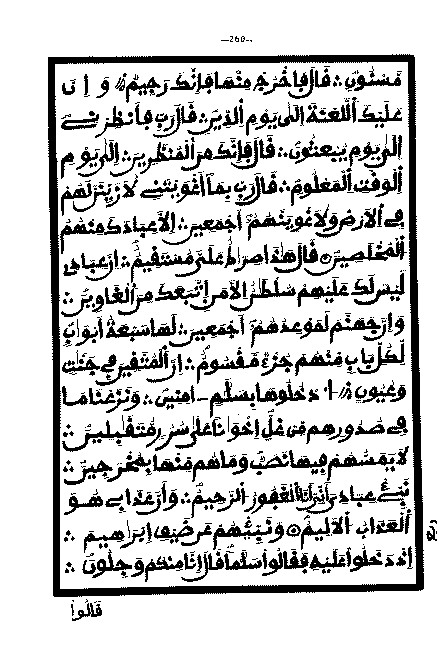 —260—
مَّسْنُونٍ ∴ قَالَ فَاخْرُجْ مِنْهَا فَإِنَّكَ رَجِيمٌ ∴ وَإِنَّ
عَلَيْكَ اَللَّعْنَةَ إِلَىٰ يَوْمِ اِلدِّينِ ∴ قَالَ رَبِّ فَأَنظِرْنِے
إِلَىٰ يَوْمِ يُبْعَثُونَ ∴ قَالَ فَإِنَّكَ مِنَ اَلْمُنظَرِينَ ∴ إِلَىٰ يَوْمِ
اِلْوَقْتِ اِلْمَعْلُومِ ∴ قَالَ رَبِّ بِمَا أَغْوَيْتَنِے لَأُزَيِّنَنَّ لَهُمْ
فِے اِلْأَرْضِ وَلَأُغْوِيَنَّهُمْ أَجْمَعِينَ ∴ إِلَّا عِبَادَكَ مِنْهُمُ
اُلْمُخْلَصِينَ ۞ قَالَ هَٰذَا صِرَٰطٌ عَلَيَّ مُسْتَقِيمٌ ∴ إِنَّ عِبَادِے
لَيْسَ لَكَ عَلَيْهِمْ سُلْطَٰنٌ إِلَّا مَنِ اِتَّبَعَكَ مِنَ اَلْغَاوِينَ ∴
وَإِنَّ جَهَنَّمَ لَمَوْعِدُهُمْ أَجْمَعِينَ ∴ لَهَا سَبْعَةُ أَبْوَٰبٍ
لِّكُلِّ بَابٍ مِّنْهُمْ جُزْءٌ مَّقْسُومٌ ∴ إِنَّ اَلْمُتَّقِينَ فِے جَنَّٰتٍ
وَعُيُونٍ ∴ اُدْخُلُوهَا بِسَلَٰمٍ ـ امِنِينَ ∴ وَنَزَعْنَا مَا
فِے صُدُورِهِم مِّنْ غِلٍّ إِخْوَٰنًا عَلَىٰ سُرُرٍ مُّتَقَٰبِلِينَ ∴
لَا يَمَسُّهُمْ فِيهَا نَصَبٌ وَمَا هُم مِّنْهَا بِمُخْرَجِينَ ∴
نَبِّئْ عِبَادِيَ أَنِّيَ أَنَا اَلْغَفُورُ اُلرَّحِيمُ ∴ وَأَنَّ عَذَابِے هُوَ
اَلْعَذَابُ اُلْأَلِيمُ ۞ وَنَبِّئْهُمْ عَن ضَيْفِ إِبْرَٰهِيمَ ∴
إِذْ دَخَلُوا عَلَيْهِ فَقَالُوا سَلَٰمًا قَالَ إِنَّا مِنكُمْ وَجِلُونَ ∴
قَالُوا